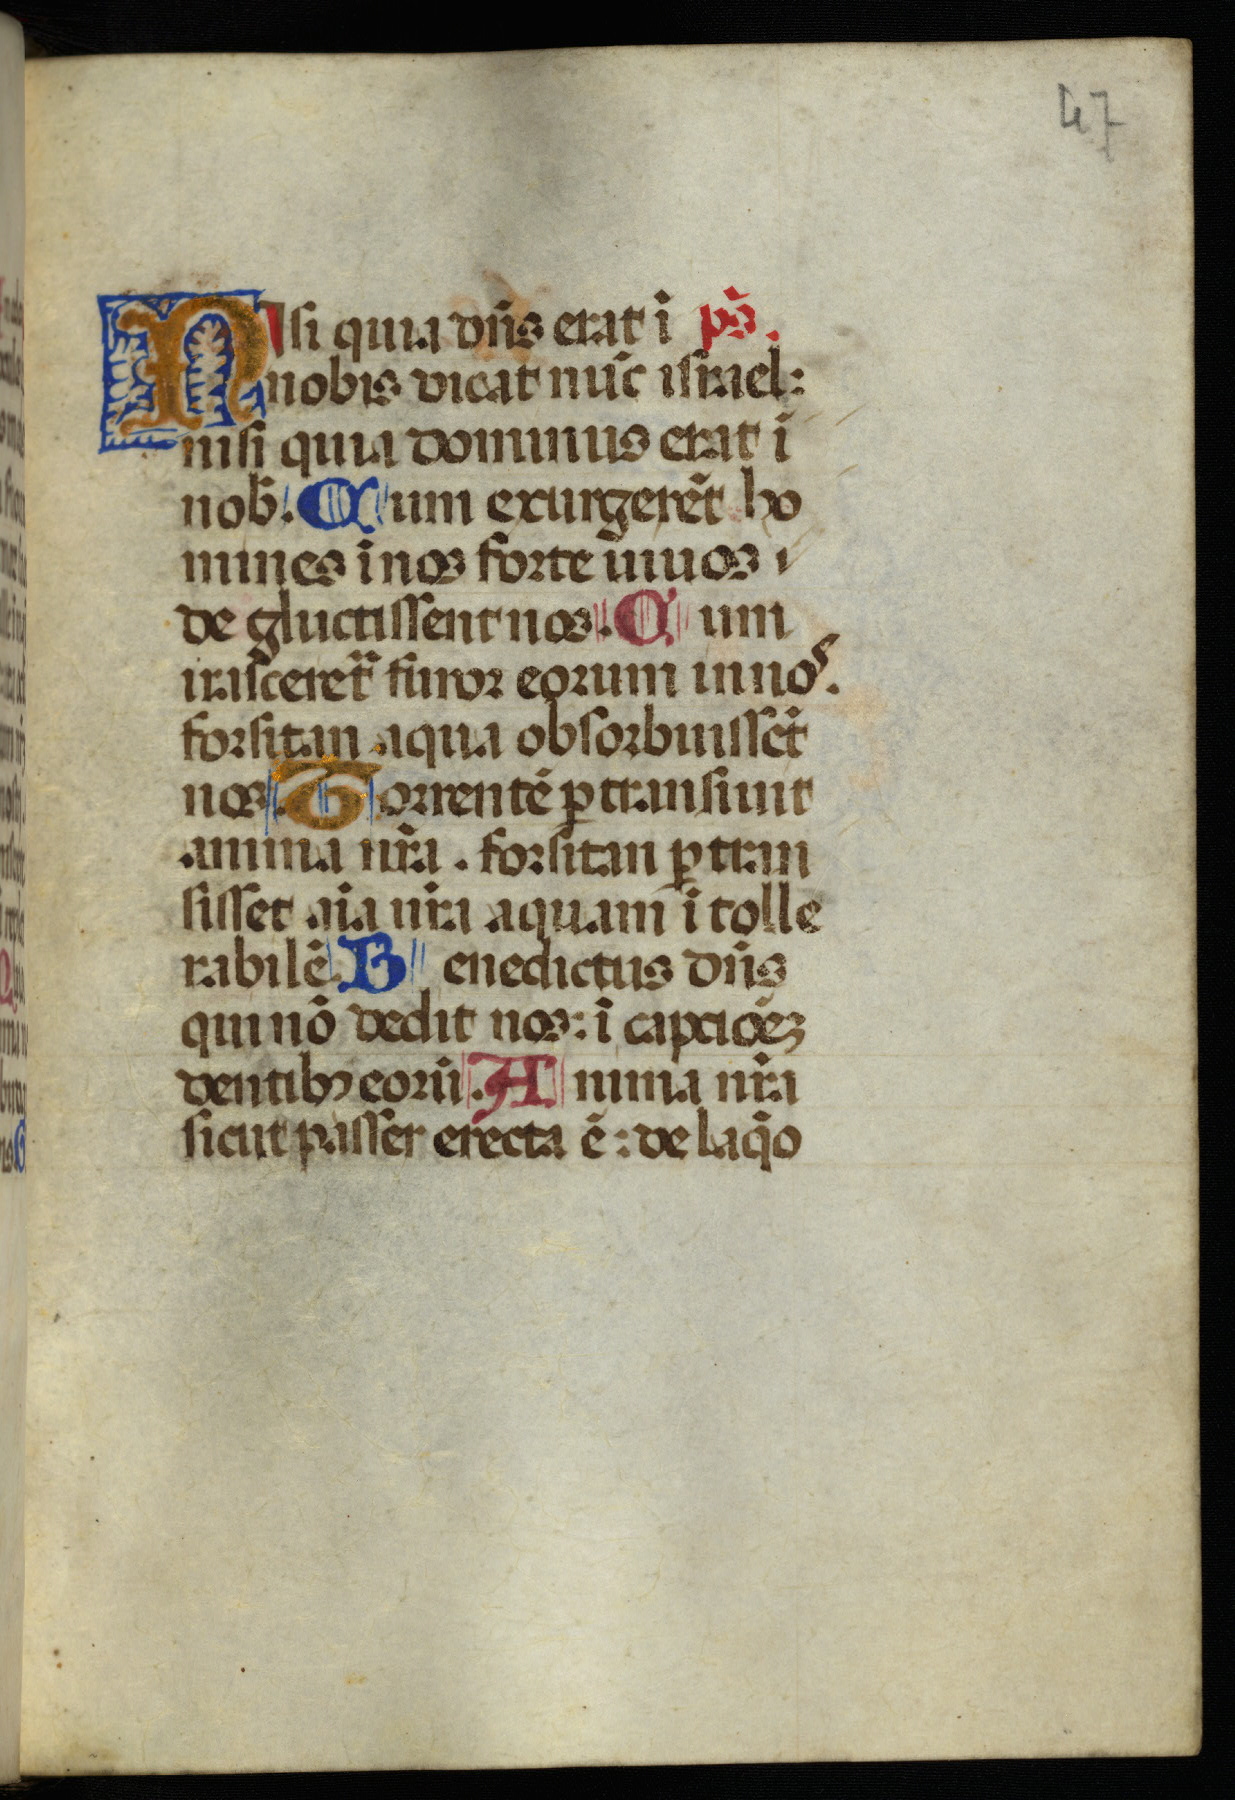 47
Nisi quia dñs erat ĩ ps̃.
nobis dicat nũc israel:
nisi quia dominus erat ĩ
nob̃. Cum exurgerẽt ho
mines ĩ nos forte ũiuos
de gluctissent nos. Cum
irasceret̃ furor eorum in nos.
forsitan aqua obsorbuissẽt
nos. Torrentẽ ꝑtransiuit
anima nr̃a. forsitan ꝑtran
sisset aĩa nr̃a aquam ĩtolle
rabilẽ. Benedictus dñs
qui nõ dedit nos: ĩ captiõeꝫ
dentibꝫ eorũ. Anima nr̃a
sicut passer erecta ẽ: de laq̃o